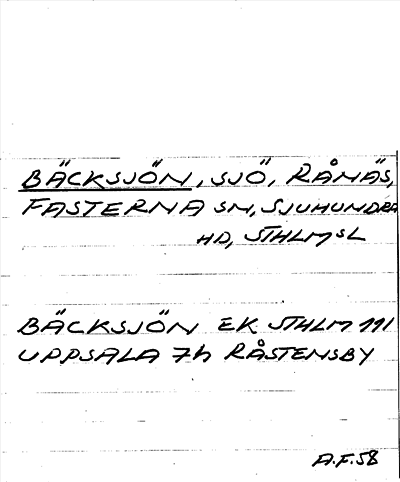 BÄCKSJÖN, SJÖ, RÅNÄS,
FASTERNA SN, SJUHUNDRA
HD, STHLMSL
BÄCKSJÖN EK STHLM 191
UPPSALA 7h RÅSTENSBY
A.F.58